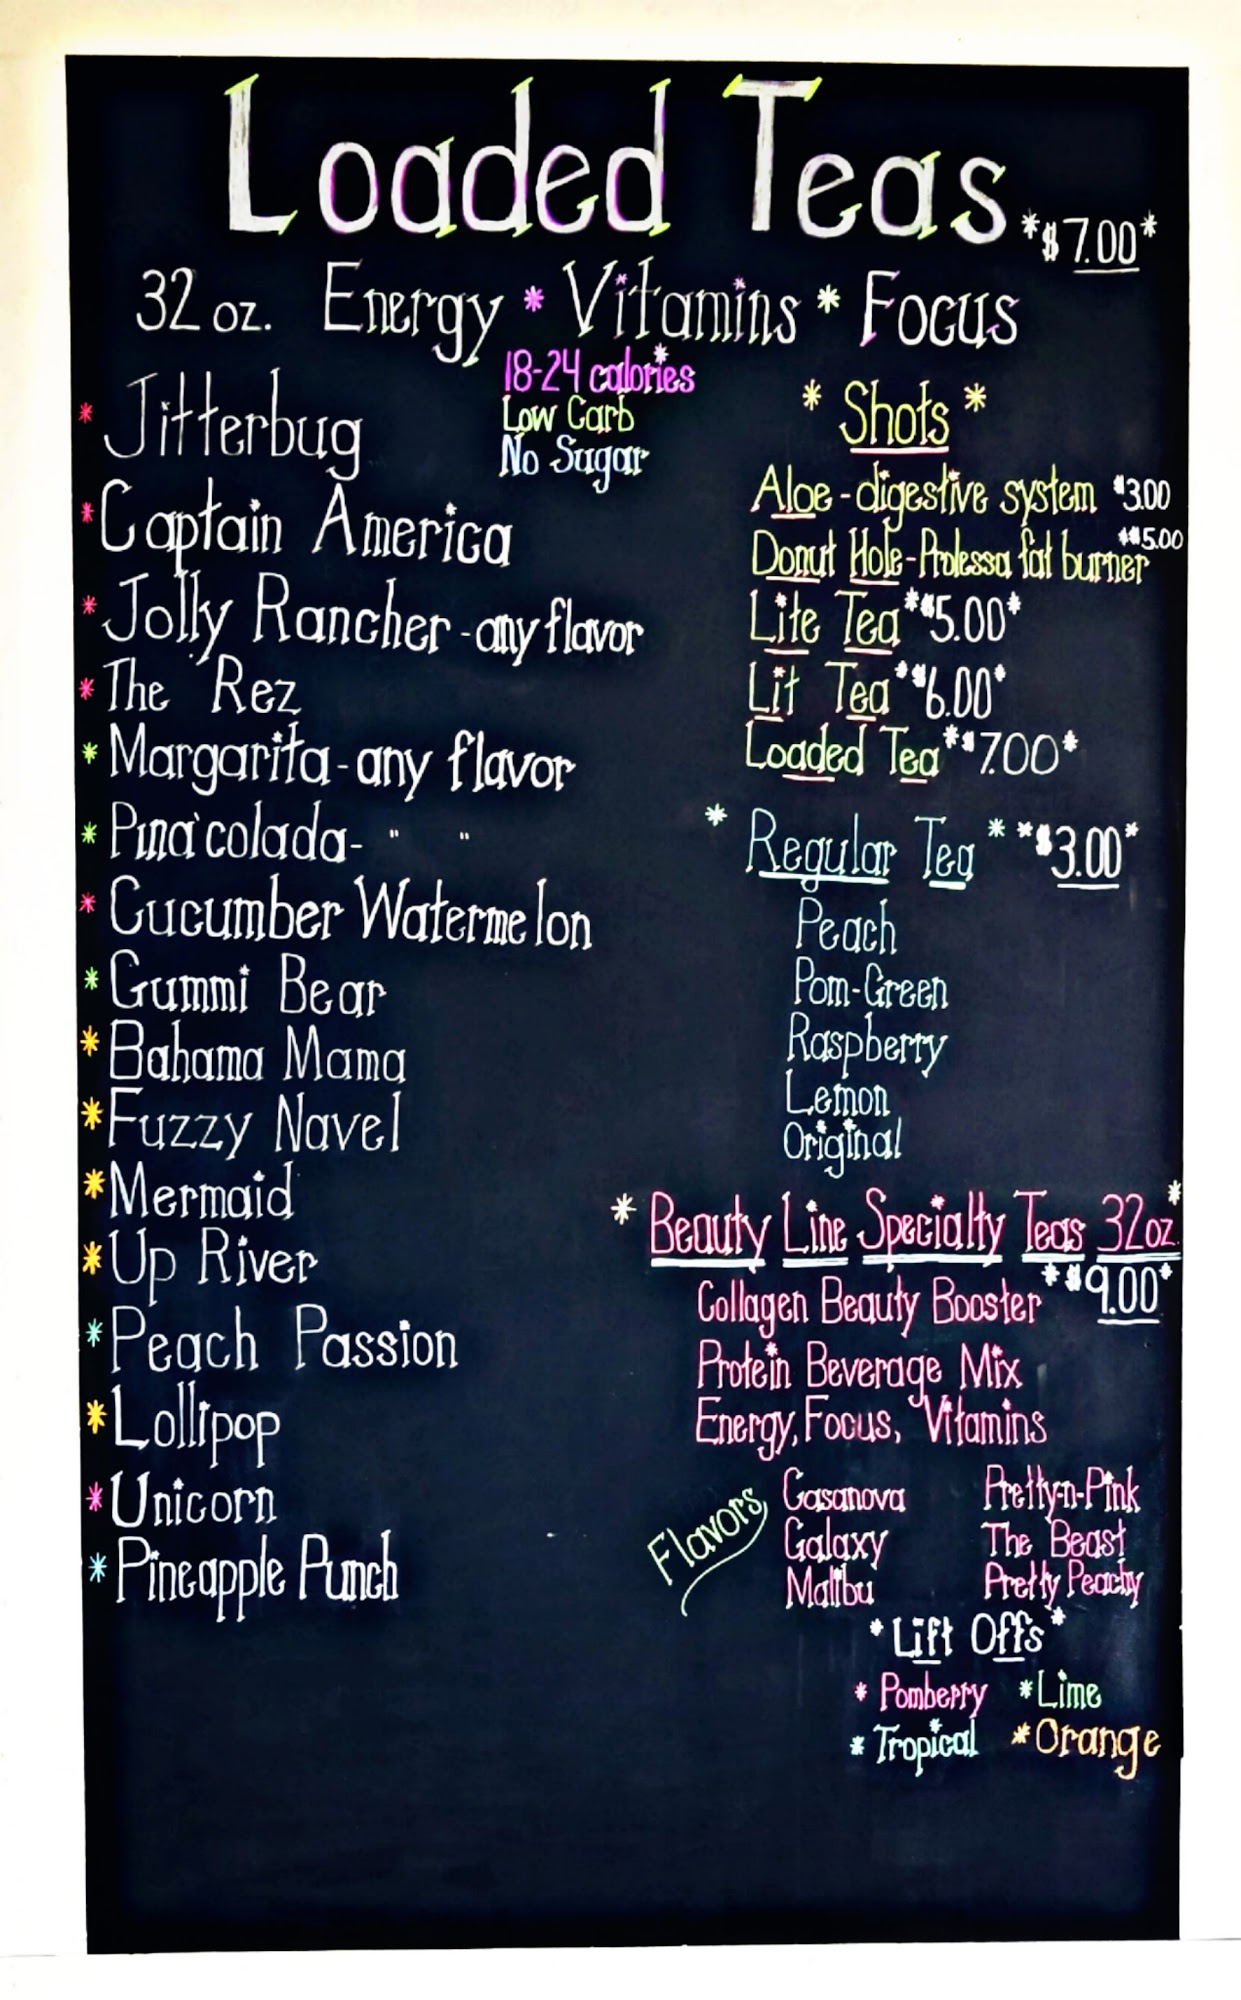 Loaded Teas *$7.00*
32 oz. Energy * Vitamins * Focus
18-24 calories
Low Carb
No Sugar
* Jitterbug
* Captain America
* Jolly Rancher - any flavor
* The Rez
* Margarita - any flavor
* Pina colada - " "
* Cucumber Watermelon
* Gummi Bear
* Bahama Mama
* Fuzzy Navel
* Mermaid
* Up River
* Peach Passion
* Lollipop
* Unicorn
* Pineapple Punch
* Shots *
Aloe - digestive system $3.00
Donut Hole - Prolessa fat burner *$5.00
Lite Tea *$5.00*
Lit Tea *$6.00*
Loaded Tea *$7.00*
* Regular Tea * *$3.00*
Peach
Pom-Green
Raspberry
Lemon
Original
* Beauty Line Specialty Teas 32oz. *
*$9.00*
Collagen Beauty Booster
Protein Beverage Mix
Energy, Focus, Vitamins
Flavors
Casanova Pretty-n-Pink
Galaxy The Beast
Malibu Pretty Peachy
*Lift Offs*
* Pomberry * Lime
* Tropical * Orange